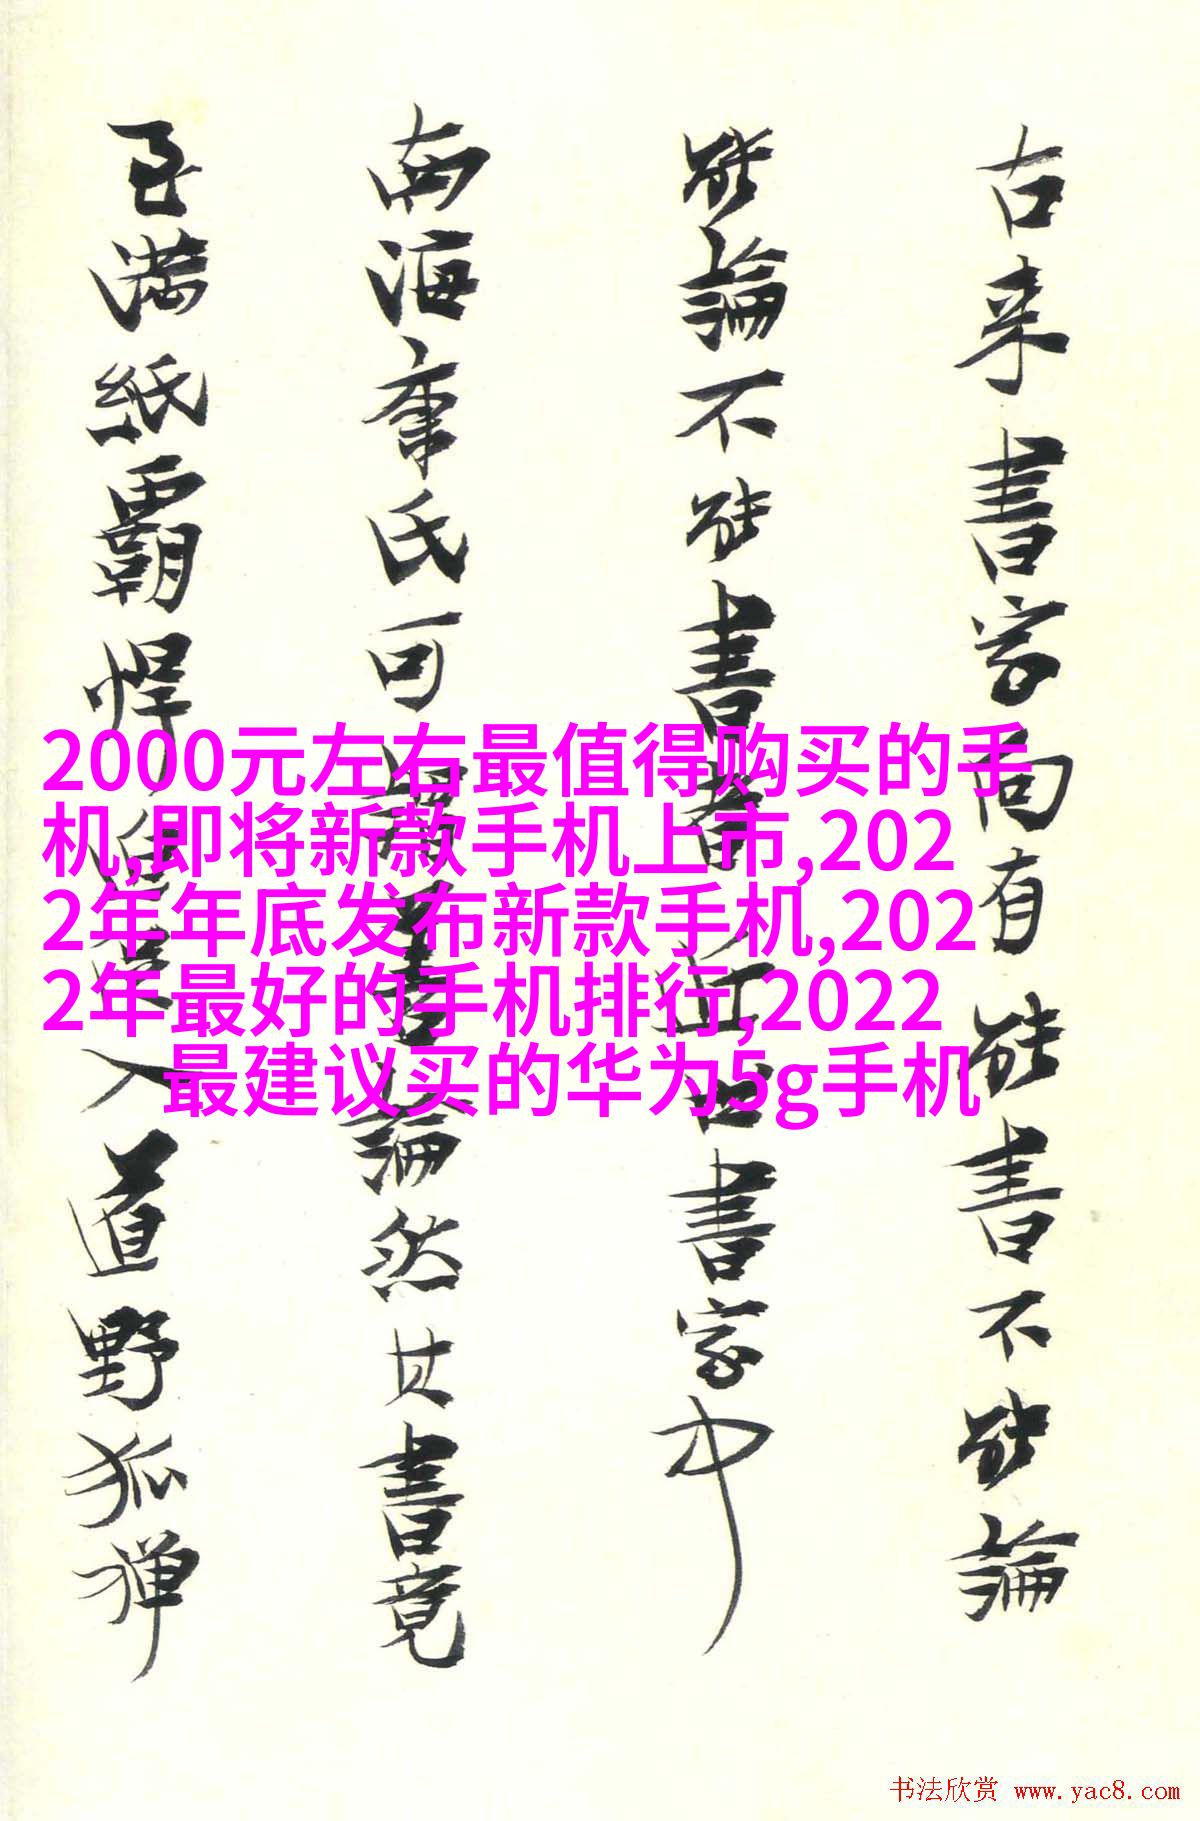 古来書家向有能書不能論
能論不能書者近世書家中
南海康氏可謂書論然其書竟
至満紙覇悍入道野狐禅
2000元左右最值得购买的手
机,即将新款手机上市,202
2年年底发布新款手机,202
2年最好的手机排行,2022
最建议买的华为5g手机
书法欣赏 www.yac8.com